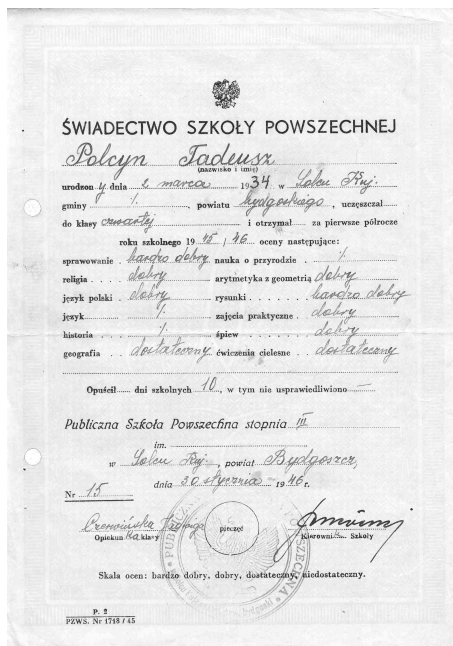 ŚWIADECTWO SZKOŁY POWSZECHNEJ
Polcyn Tadeusz
(nazwisko i imię)
urodzony dnia 2 marca 1934 w Solcu Kuj.
gminy ⁒, powiatu bydgoskiego, uczęszczał
do klasy czwartej i otrzymał za pierwsze półrocze
roku szkolnego 1945/46 oceny następujące:
sprawowanie bardzo dobry nauka o przyrodzie ⁒
religia dobry arytmetyka z geometrią dobry
język polski dobry rysunki bardzo dobry
język ⁒ zajęcia praktyczne dobry
historia ⁒ śpiew dobry
geografia dostateczny ćwiczenia cielesne dostateczny
Opuścił dni szkolnych 10, w tym nie usprawiedliwiono —
Publiczna Szkoła Powszechna stopnia III
im.
w Solcu Kuj., powiat Bydgoszcz,
dnia 30 stycznia 1946 r.
Nr 15
Czerwińska Jadwiga
Opiekunka klasy
pieczęć
Kierownik Szkoły
Skala ocen: bardzo dobry, dobry, dostateczny, niedostateczny.
P. 2
PZWS. Nr 1718/45